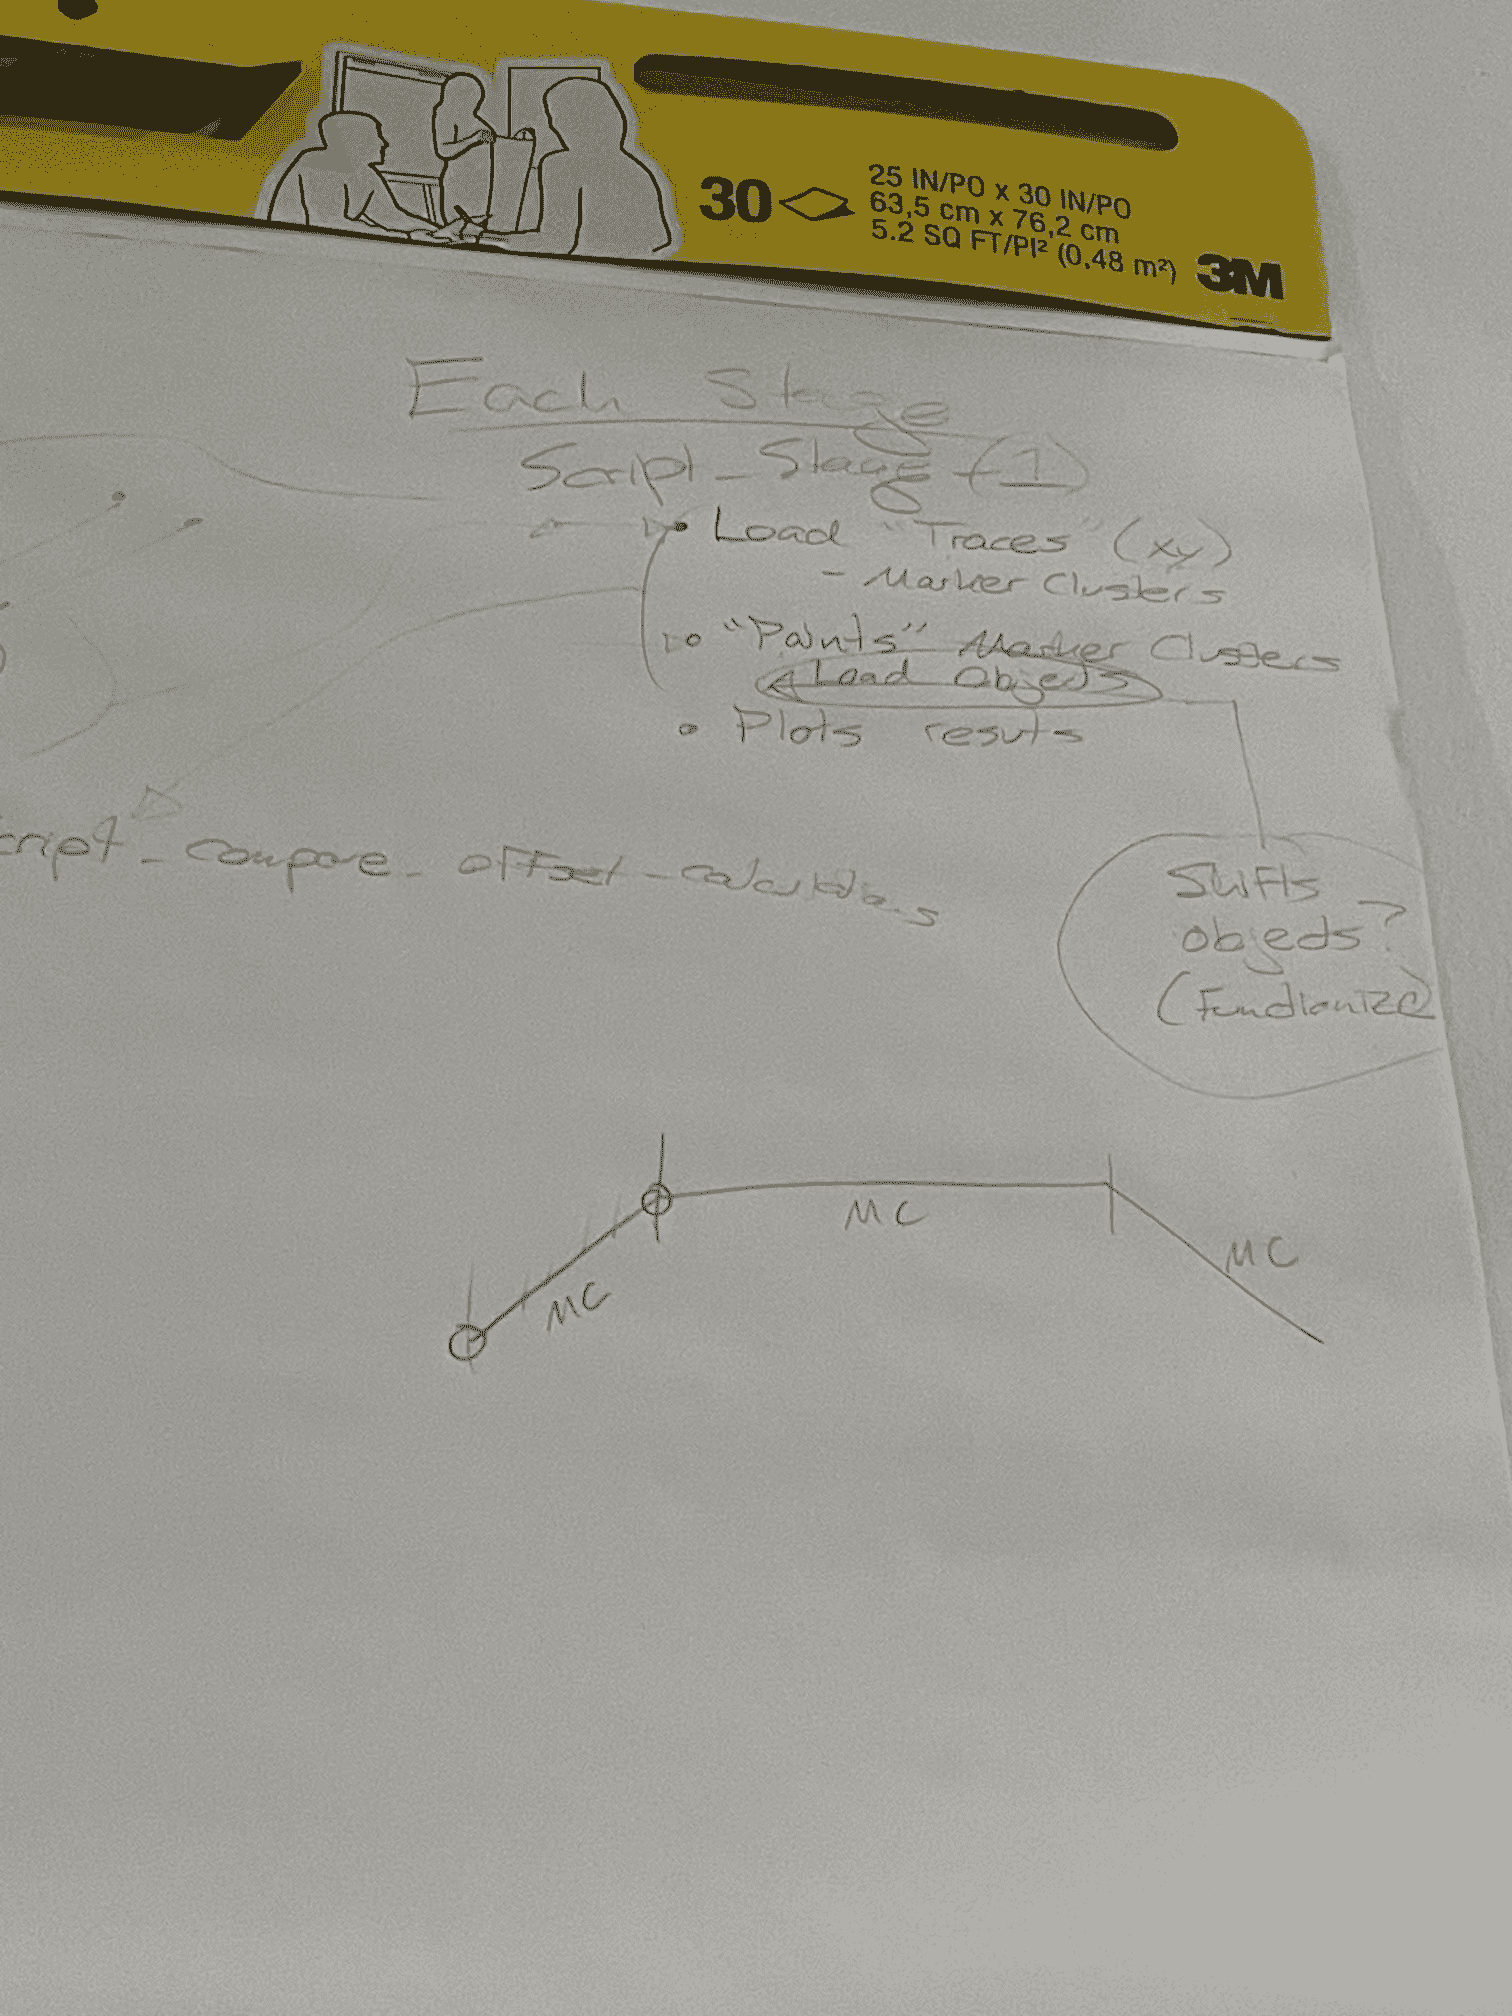 30
25 IN/PO x 30 IN/PO
63,5 cm x 76,2 cm
5.2 SQ FT/PI² (0.48 m²)
3M
Each Stage
Script_Stage_(1)
• Load "Traces" (xy)
- Marker Clusters
• "Paints" Marker Clusters
Load Objects
• Plots resuts
cript_compare_offset_calculations
Shifts
objects?
(Functionize)
MC
MC
MC